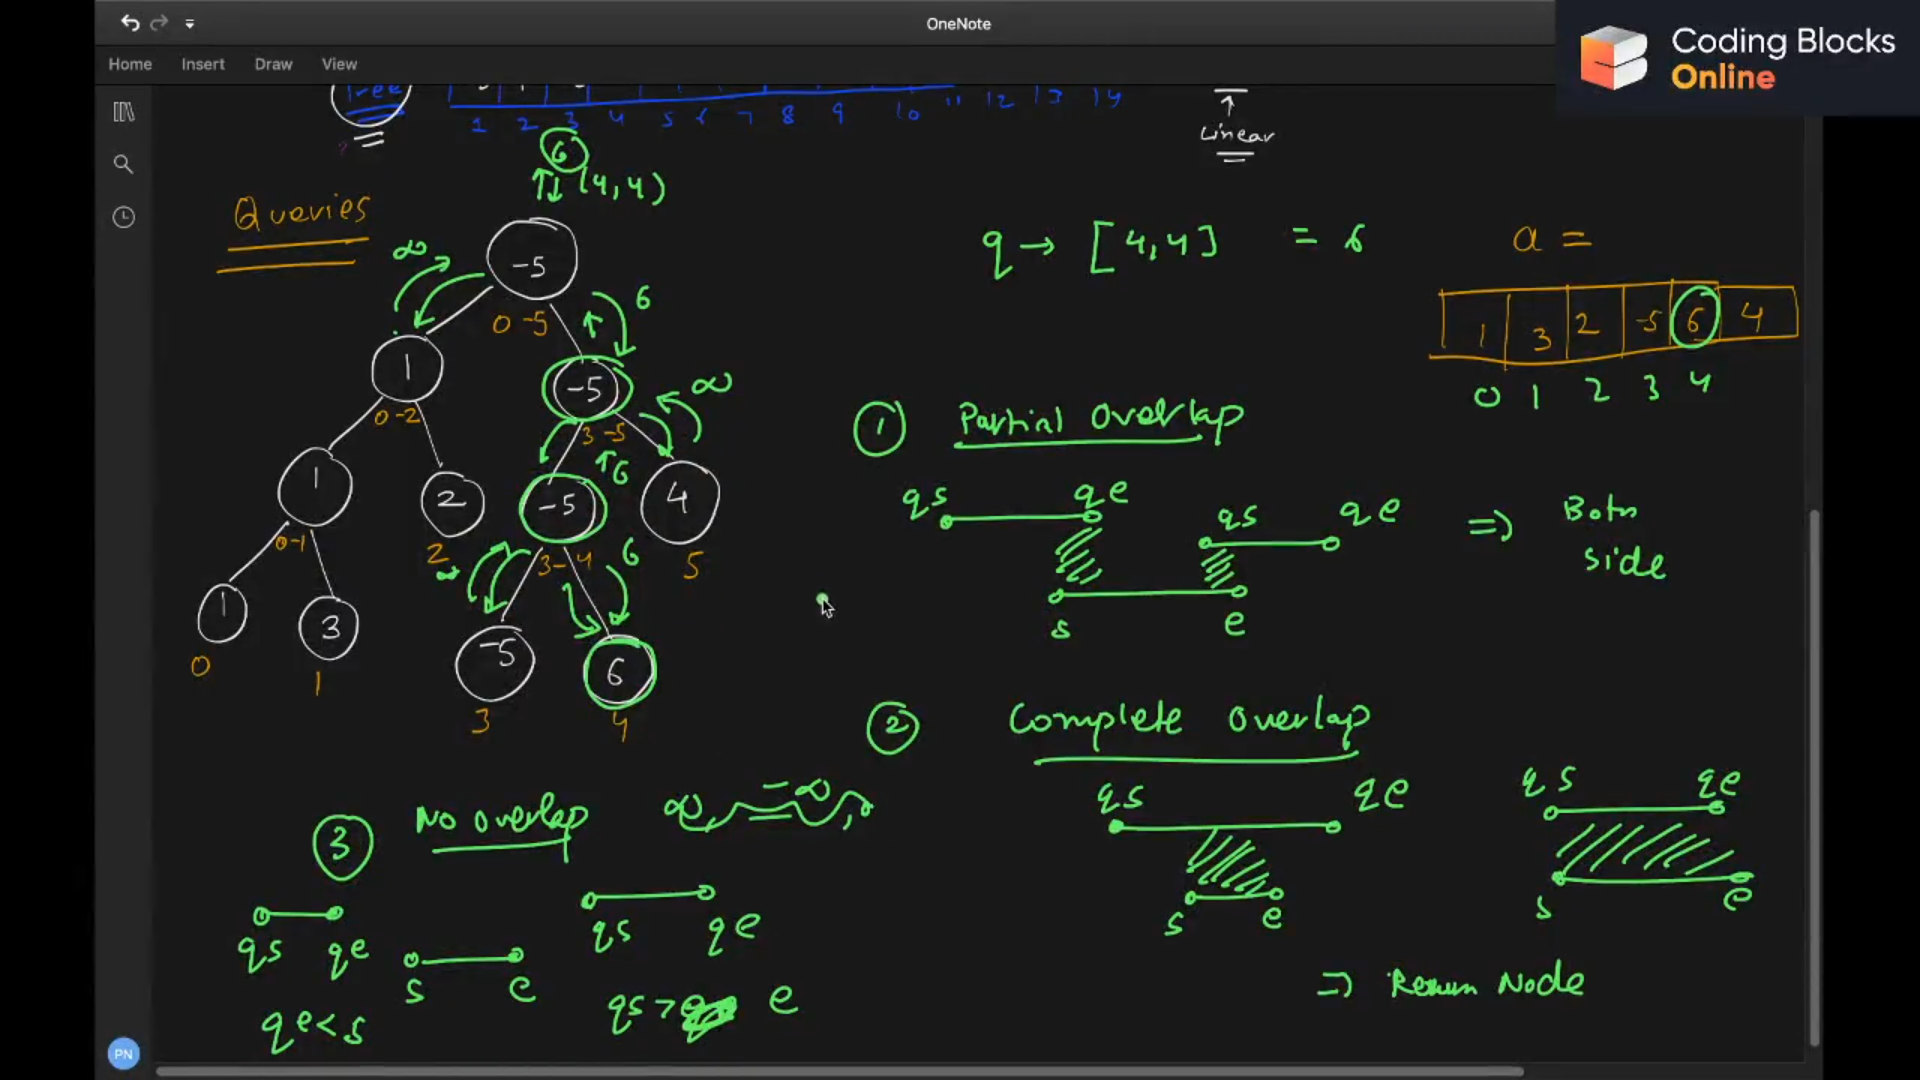 OneNote
Coding Blocks
Online
Home Insert Draw View
Tree
1 2 3 4 5 6 7 8 9 10 11 12 13 14
Linear
6
(4,4)
Queries
q → [4,4] = 6
a =
1 3 2 -5 6 4
0 1 2 3 4
∞
-5
0-5
6
1
0-2
-5
3-5
∞
1
0-1
2
2
-5
3-4
6
4
5
∞
6
1
0
3
1
-5
3
6
4
① Partial Overlap
qs qe
qs qe
s e
⇒ Both
side
② Complete Overlap
qs qe
s e
qs qe
s e
⇒ Return Node
③ No overlap
∞ -∞
qs qe
s e
qe < s
qs qe
qs > e
PN